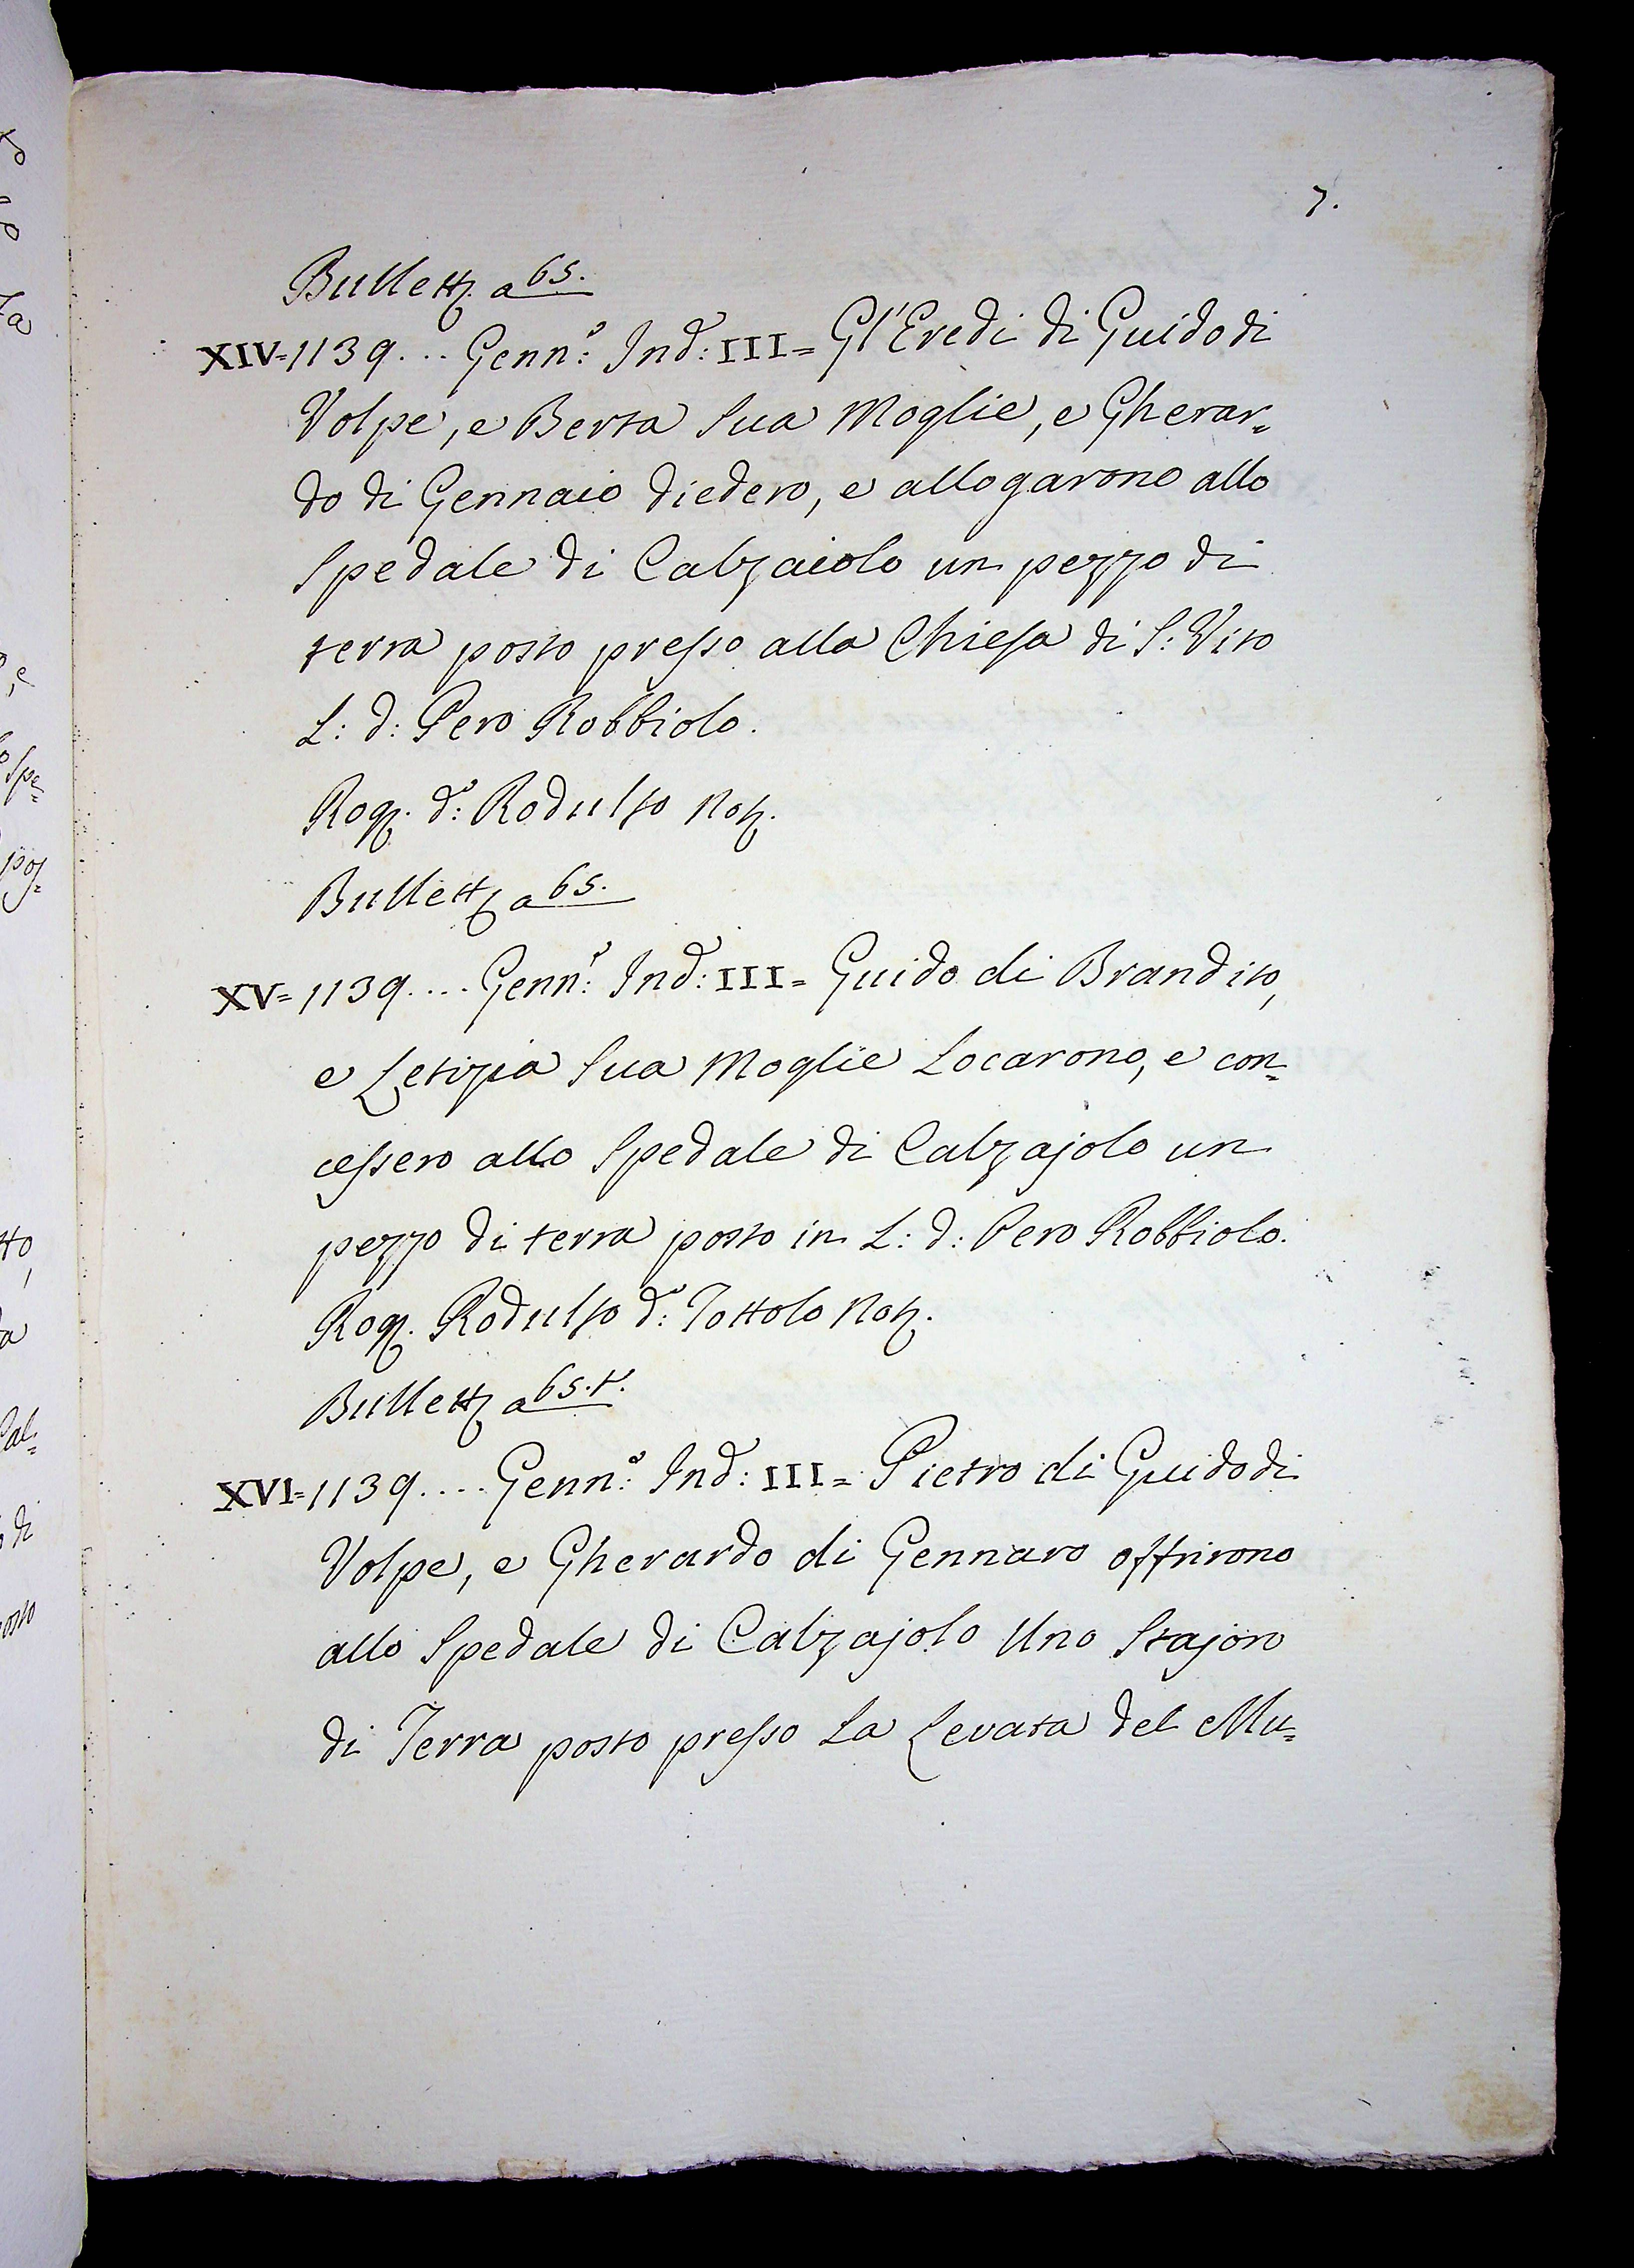 7.
Bullett. a 65.
XIV=1139... Genn.º Ind.: III= Gl'Eredi di Guido di
Volpe, e Berta sua Moglie, e Gherar=
do di Gennaio diedero, e allogarono allo
Spedale di Calzaiolo un pezzo di
terra posto presso alla Chiesa di S: Vito
L: d: Pero Robbiolo.
Rog. d.º: Rodulfo Not.
Bullett. a 65.
XV= 1139.... Genn.º: Ind: III= Guido di Brandito,
e Letizia sua Moglie Locarono, e con=
cessero allo Spedale di Calzajolo un
pezzo di terra posto in L: d: Pero Robbiolo.
Rog. Rodulfo d.º: Tottolo Not.
Bullett. a 65.t.
XVI=1139.... Genn.º: Ind: III= Pietro di Guido di
Volpe, e Gherardo di Gennaro offrirono
allo Spedale di Calzajolo Uno Stajoro
di Terra posto presso La Levata del Mu=